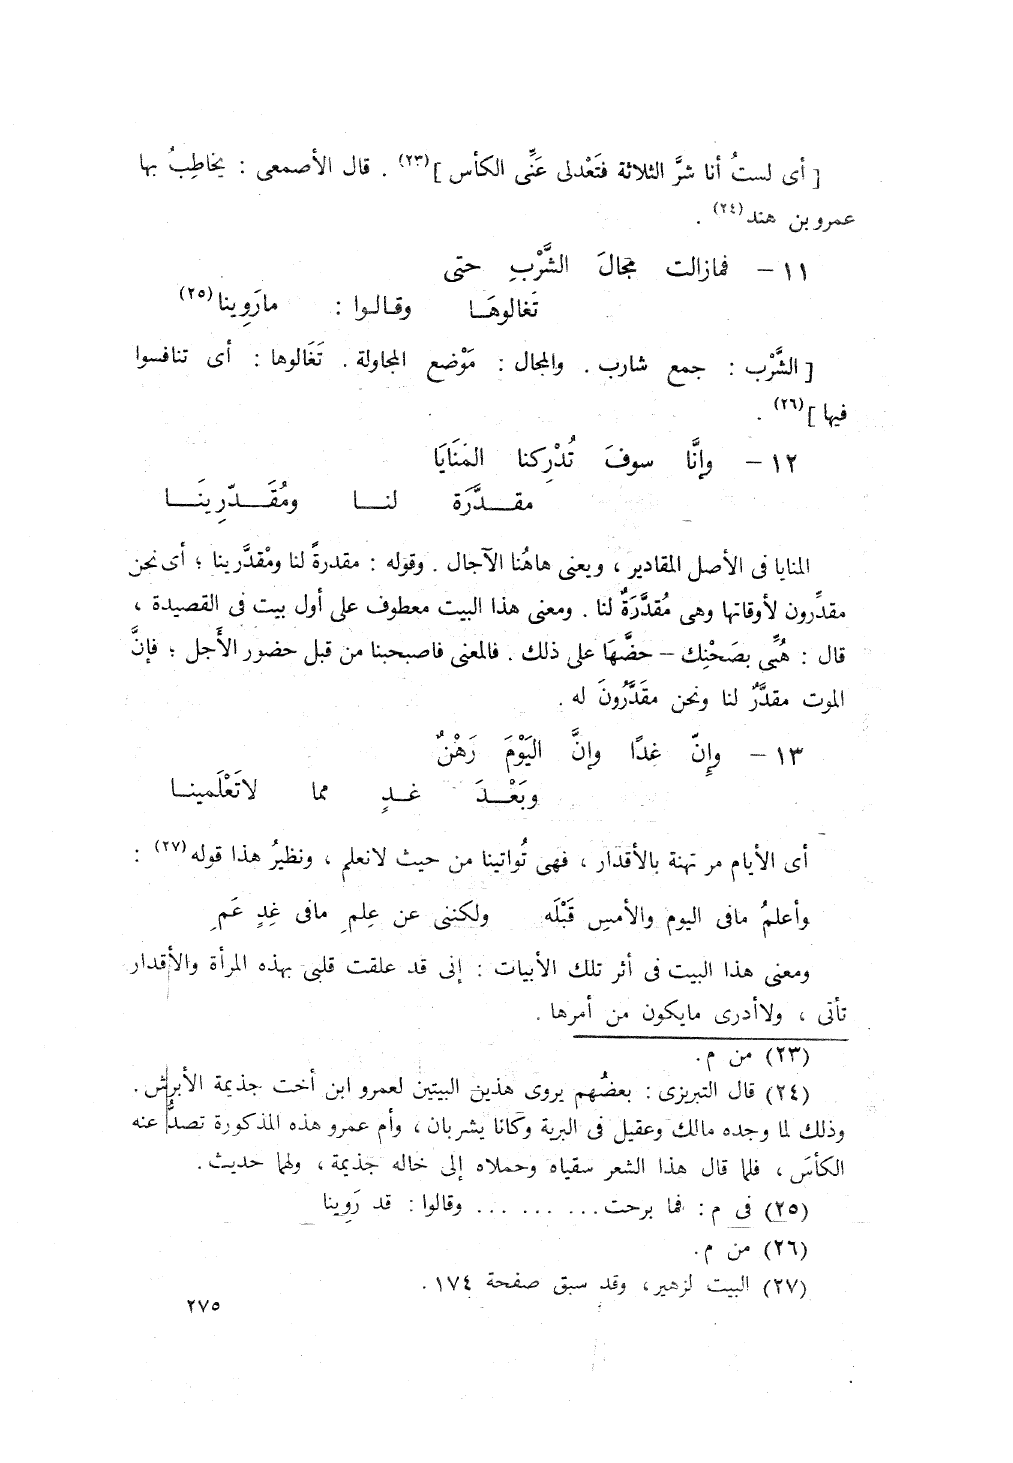 [ أى لستُ أنا شرَّ الثلاثة فتَعْدلى عَنِّى الكأس ](٢٣) . قال الأصمعى : يخاطِبُ بها
عمرو بن هند(٢٤) .
١١ – فمازالت مجالَ الشَّرْبِ حتى
تَغالوهَـا وقـالـوا : مارَوِينا(٢٥)
[ الشَّرْب : جمع شارب . والمجال : مَوْضع المجاولة . تَغَالوها : أى تنافسوا
فيها ](٢٦) .
١٢ – وإنَّا سوفَ تُدْرِكنا المَنَايَا
مقــدَّرَة لنــا ومُقَــدّرِينَــا
المنايا فى الأصل المقادير ، ويعنى هاهُنا الآجال . وقوله : مقدرةً لنا ومُقدَّرينا ؛ أى نحن
مقدِّرون لأوقاتها وهى مُقدَّرَةٌ لنا . ومعنى هذا البيت معطوف على أول بيت فى القصيدة ،
قال : هُبِّى بصَحْنِك – حضَّهَا على ذلك . فالمعنى فاصبحينا من قبل حضور الأَجل ؛ فإنَّ
الموت مقدَّرٌ لنا ونحن مقَدَّرُونَ له .
١٣ – وإِنّ غدًا وإنَّ اليَوْمَ رَهْنٌ
وبَعْــدَ غــدٍ مما لاتَعْلَمينــا
أى الأيام مرتهنة بالأقدار ، فهى تُواتينا من حيث لانعلم ، ونظيرُ هذا قوله(٢٧) :
وأعلمُ مافى اليوم والأمسِ قَبْلَه ولكننى عن عِلمِ مافى غدٍ عَمِ
ومعنى هذا البيت فى أثر تلك الأبيات : إنى قد علقت قلبى بهذه المرأة والأقدار
تأتى ، ولاأدرى مايكون من أمرها .
(٢٣) من م.
(٢٤) قال التبريزى : بعضُهم يروى هذين البيتين لعمرو ابن أخت جذيمة الأبرش .
وذلك لما وجده مالك وعقيل فى البرية وكانا يشربان ، وأم عمرو هذه المذكورة تصدُّ عنه
الكأسَ ، فلما قال هذا الشعر سقياه وحملاه إلى خاله جذيمة ، ولهما حديث.
(٢٥) فى م : فما برحت... ... ... وقالوا : قد رَوِينا
(٢٦) من م.
(٢٧) البيت لزهير، وقد سبق صفحة ١٧٤ .
٢٧٥